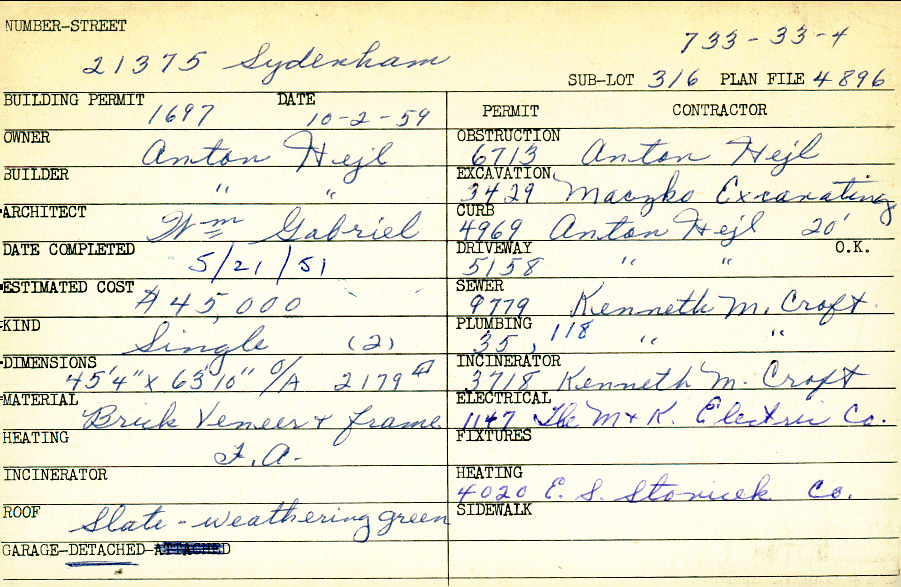 NUMBER-STREET
733-33-4
21375 Sydenham
SUB-LOT 316 PLAN FILE 4896
BUILDING PERMIT 1697 DATE 10-2-59
OWNER Anton Hejl
BUILDER " "
ARCHITECT Wm Gabriel
DATE COMPLETED 5/21/51
ESTIMATED COST $45,000
KIND Single (2)
DIMENSIONS 45'4" X 63'10" O/A 2179
MATERIAL Brick Veneer & frame
HEATING F.A.
INCINERATOR
ROOF Slate - weathering green
GARAGE-DETACHED-ATTACHED
PERMIT CONTRACTOR
OBSTRUCTION 6713 Anton Hejl
EXCAVATION 3429 Maczko Excavating
CURB 4969 Anton Hejl 20'
DRIVEWAY 5158 " " O.K.
SEWER 9779 Kenneth M. Croft
PLUMBING 35,118 " "
INCINERATOR 3718 Kenneth M. Croft
ELECTRICAL 1147 The M & K. Electric Co.
FIXTURES
HEATING 4020 E. S. Stovicek Co.
SIDEWALK